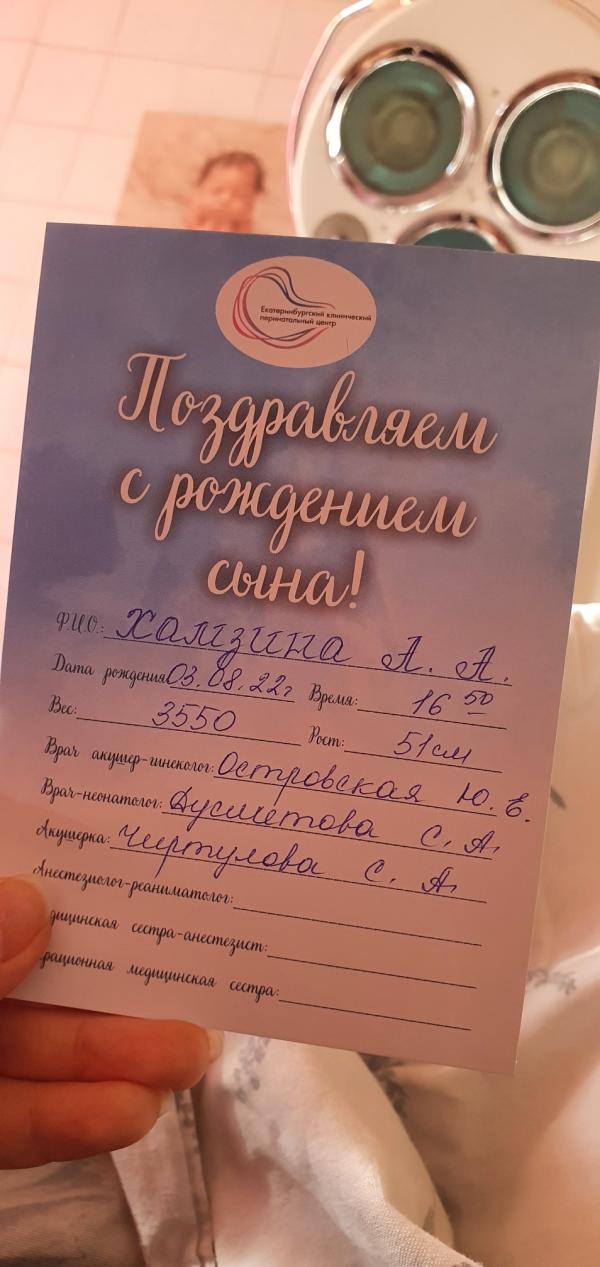 Екатеринбургский клинический
перинатальный центр
Поздравляем
с рождением
сына!
Ф.И.О.: Хамзина А. А.
Дата рождения 03.08.22г Время: 16 50
Вес: 3550 Рост: 51см
Врач акушер-гинеколог: Островская Ю. Е.
Врач-неонатолог: Дусметова С. А.
Акушерка: Чиртулова С. А.
Анестезиолог-реаниматолог:
дицинская сестра-анестезист:
рационная медицинская сестра: